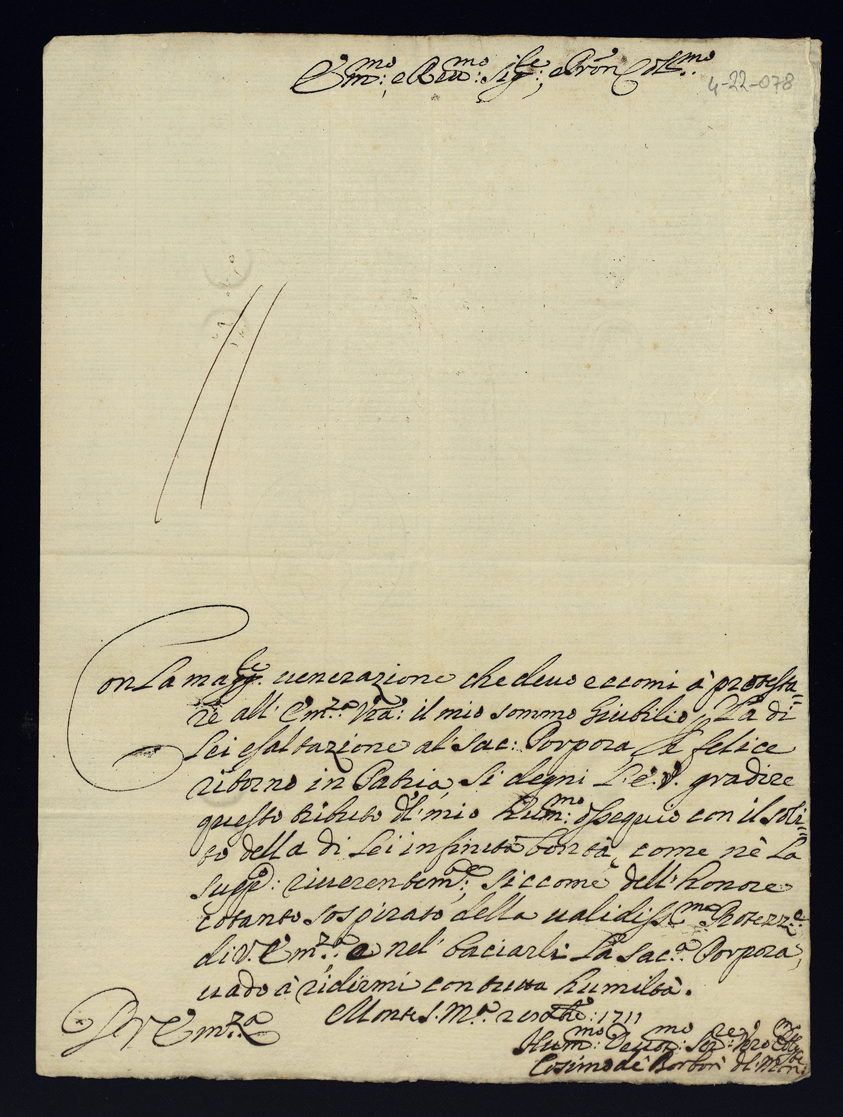 Em:mo e Rev:mo Sig:re, e Pron Col:mo
4-22-078
Con La magg:re uenerazione che deuo eccomi à protesta=
re all' Em:za Vra: il mio sommo Giubilo p La di
Lei esaltazione al' Sac: Porpora, e felice
ritorno in Patria, Si degni L'E.V. gradire
questo tributo d'l mio hum:mo ossequio con il soli=
to della di Lei infinita bontà, come nè La
supp:o riuerentem:e, siccome dell' honore
cotanto sospirato della ualidiss:ma Protezz:e
di V. Em:za e nel' baciarli La Sac:a Porpora,
uado à ridirmi con tutta humiltà.
Monte S. M:a 1711
V Em:za
Hum:mo Deuot:mo Ser:re Vero
Cosimo de Borbon d'l Mon:te